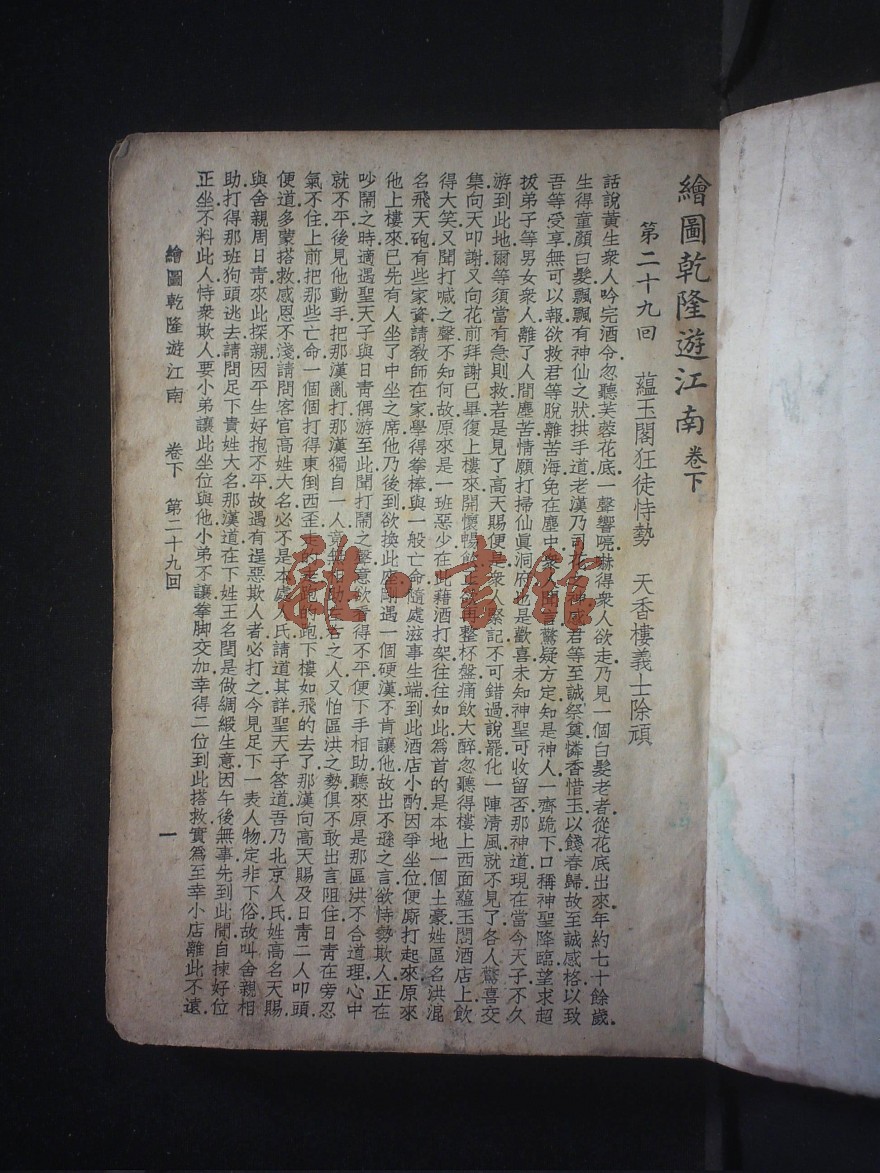 繪圖乾隆遊江南 卷下
第二十九回 蘊玉閣狂徒恃勢 天香樓義士除頑
話說黃生衆人吟完酒令忽聽芙蓉花底一聲響喨嚇得衆人欲走乃見一個白髮老者從花底出來年約七十餘歲
生得童顏白髮飄飄有神仙之狀拱手道老漢乃司花之神感君等至誠祭奠憐香惜玉以餞春歸故至誠感格以致
吾等受享無可以報欲救君等脫離苦海免在塵中衆人聞言驚疑方定知是神人一齊跪下口稱神聖降臨望求超
拔弟子等男女衆人離了人間塵苦情願打掃仙眞洞府也是歡喜未知神聖可收留否那神道現在當今天子不久
游到此地爾等須當有急則救若是見了高天賜便是衆人緊記不可錯過說罷化一陣清風就不見了各人驚喜交
集向天叩謝又向花前拜謝已畢復上樓來開懷暢飲正欲再整杯盤痛飲大醉忽聽得樓上西面蘊玉閣酒店上飲
得大笑又聞打喊之聲不知何故原來是一班惡少在此藉酒打架往往如此爲首的是本地一個土豪姓區名洪混
名飛天砲有些家資請敎師在家學得拳棒與一般亡命隨處滋事生端到此酒店小酌因爭坐位便廝打起來原來
他上樓來已先有人坐了中坐之席他乃後到欲換此座剛遇一個硬漢不肯讓他故出不遜之言欲恃勢欺人正在
吵鬧之時適遇聖天子與日靑偶游至此聞打鬧之聲意欲看得不平便下手相助聽來原是那區洪不合道理心中
就不平後見他動手把那漢亂打那漢獨自一人竟無相助左右之人又怕區洪之勢俱不敢出言阻住日靑在旁忍
氣不住上前把那些亡命一個個打得東倒西歪走的走跑的跑下樓如飛的去了那漢向高天賜及日靑二人叩頭
便道多蒙搭救感恩不淺請問客官高姓大名必不是本處人氏請道其詳聖天子答道吾乃北京人氏姓高名天賜
與舍親周日靑來此探親因平生好抱不平故遇有逞惡欺人者必打之今見足下一表人物定非下俗故叫舍親相
助打得那班狗頭逃去請問足下貴姓大名那漢道在下姓王名閏是做綢緞生意因午後無事先到此間自揀好位
正坐不料此人恃衆欺人要小弟讓此坐位與他小弟不讓拳脚交加幸得二位到此搭救實爲至幸小店離此不遠
繪圖乾隆遊江南 卷下 第二十九回 一
雜·書館